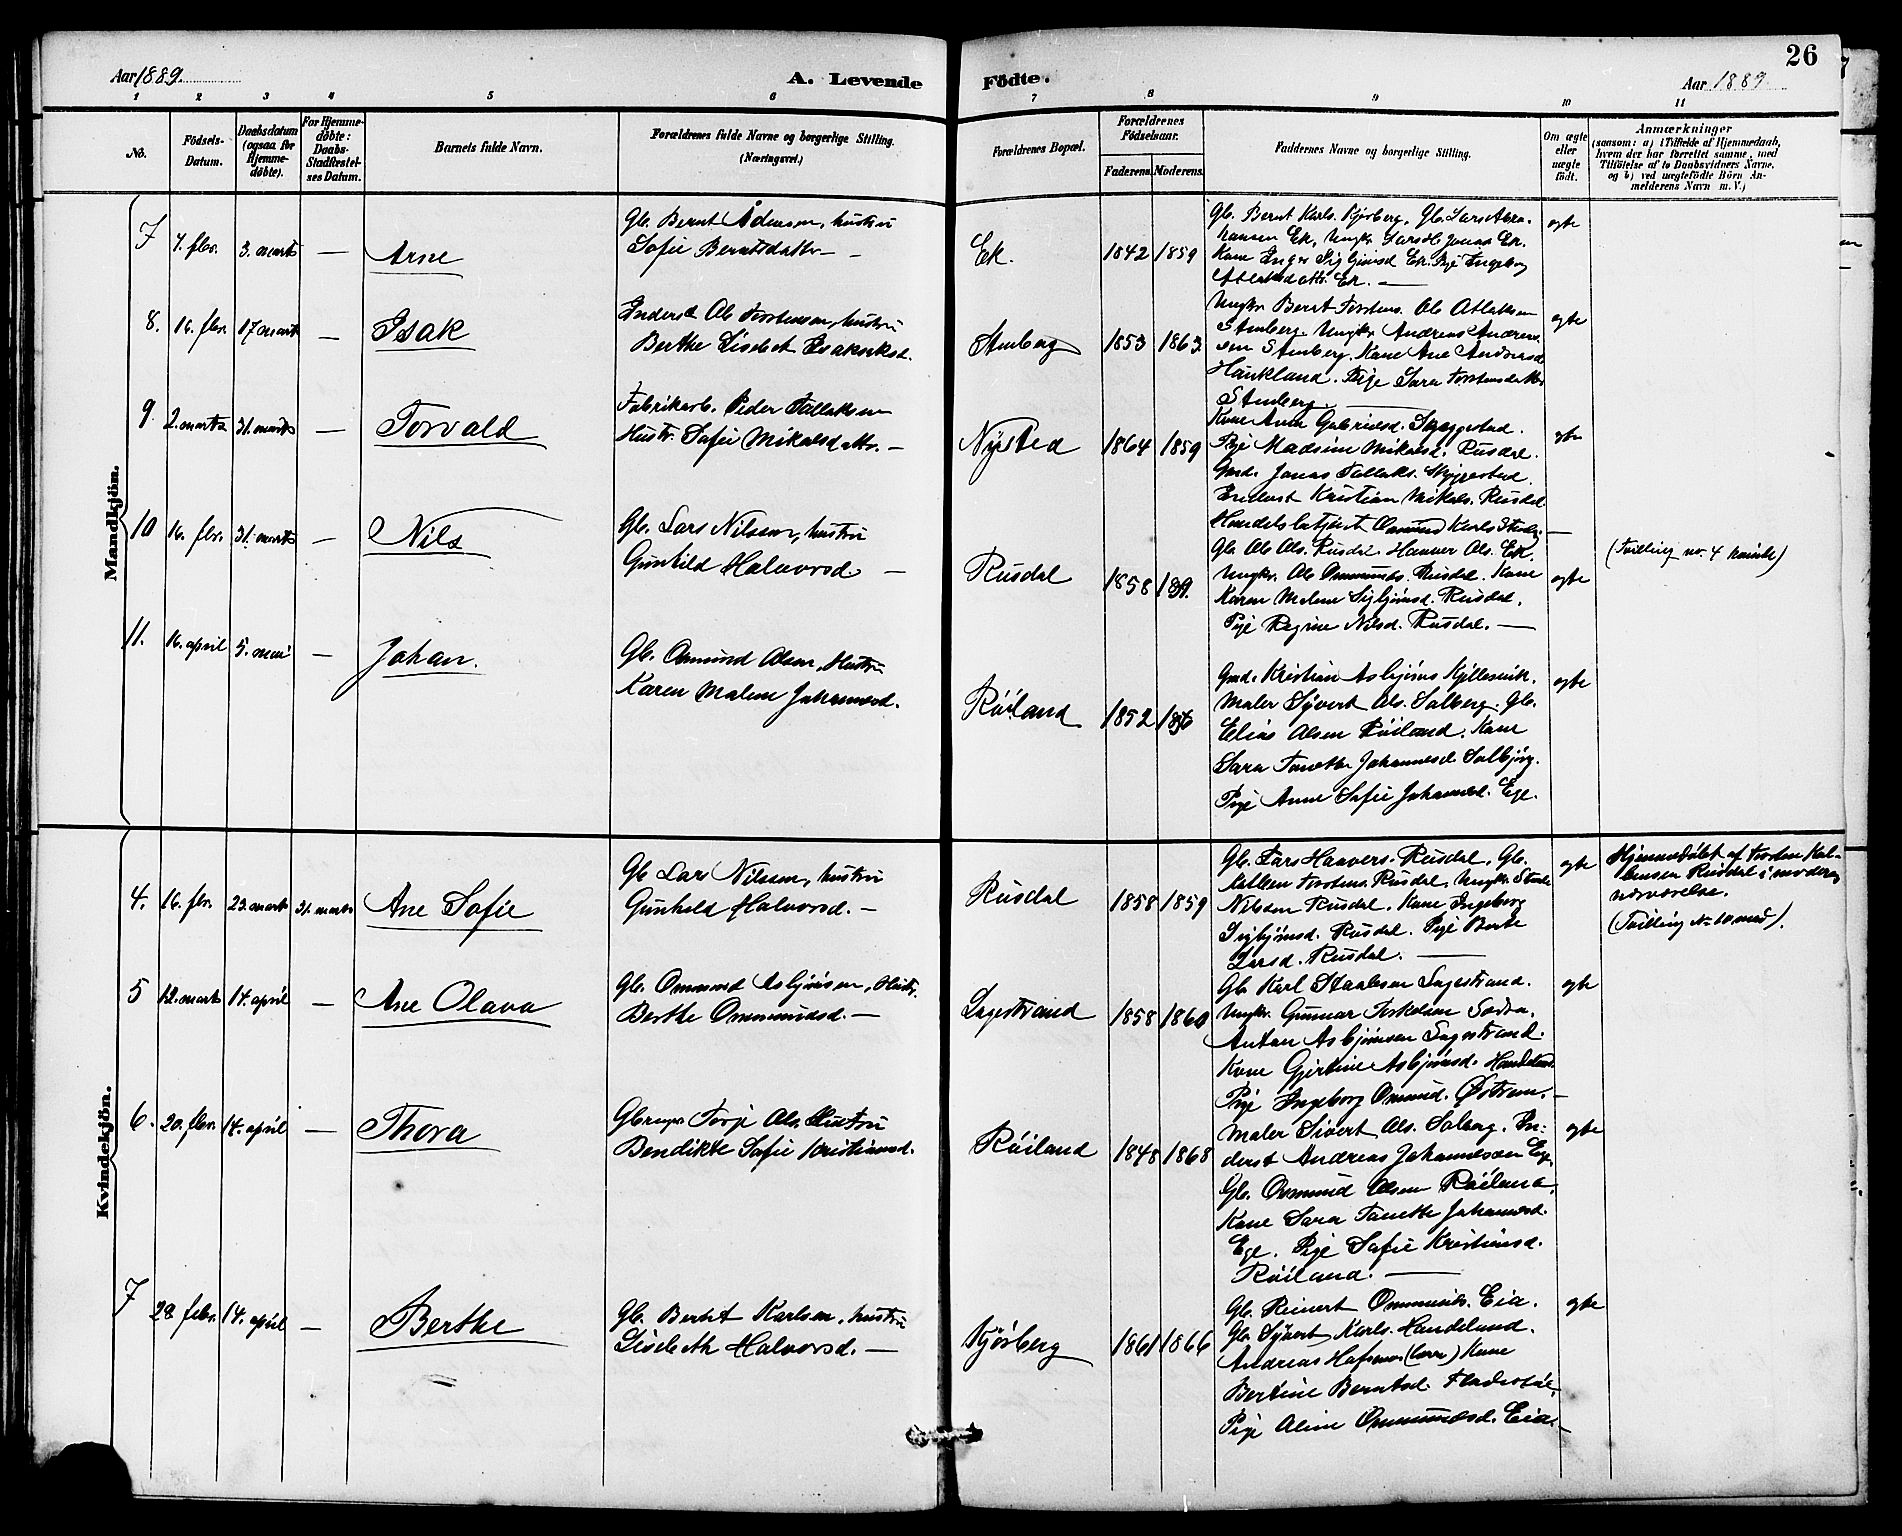 26
Aar 1889. A. Levende Födte. Aar 1889.
1 2 3 4 5 6 7 8 9 10 11
No. Födsels-Datum. Daabsdatum (ogsaa for Hjemmedöbte). For Hjemmedöbte: Daabs-Stadfæstelses Datum. Barnets fulde Navn. Forældrenes fulde Navne og borgerlige Stilling. (Næringsvei.) Forældrenes Bopæl. Forældrenes Födselsaar. Faderens. Moderens. Faddernes Navne og borgerlige Stilling. Om ægte eller uægte födt. Anmærkninger (saasom: a) i Tilfælde af Hjemmedaab, hvem der har forrettet samme, med Tilföielse af to Daabsvidners Navne, og b) ved uægtefödte Börn Anmelderens Navn m. V.)
Mandkjön.
7 7. febr. 3. marts — Arne
Gb. Bernt Ådnesen, hustru
Sofie Berntsdatter —
Ek. 1842 1859
Gb. Bernt Karls. Kjörberg, Gb. Lars Abra-
hamsen Ek, Ungkr. Lars Jonas Ek.
Kone Inger Sigbjörnsd Ek. Pige Ingeborg
Atlaksdattr. Ek. —
egte
8. 16. febr. 17 marts — Isak
Inderst Ole Torstensen, hustru
Berthe Lisebet Isaksd.
Stenberg 1853 1863
Ungkr. Bernt Torstens. Ole Atlaksen
Stenberg. Ungkr. Andreas Andreas-
sen Stenberg. Kone Ane Andersd
Haukland. Pige Sara Torstensdatter
Stenberg. —
egte
9. 2. marts 31. marts — Torvald
Fabrikarb. Peder Tollaksen
Hustr. Sofie Mikalsdattr. —
Nysted 1864 1859
Kone Anne Gabrielsd. Skjeggestad.
Pige Madsine Mikalsd. Rusdal.
Gmd. Jonas Tollaks. Skjeggestad.
Inderst Kristian Mikals. Rusdal
Handelsbetjent Omund Karls Stenberg —
egte
10 16. febr. 31. marts — Nils
Gb. Lars Nilssen, hustru
Gunhild Halvorsd. —
Rusdal 1858 1859.
Gb. Ole Ols. Rusdal. Haaver Ols. Ek.
Ungkr. Ole Ommunds. Rusdal. Kone
Karen Malene Sigbjörnsd. Rusdal.
Pige Regine Nilsd. Rusdal. —
egte
(Tvilling no. 4 kvinde)
11. 16. april 5. mai — Johan.
Gb. Omund Olsen, Hustru
Karen Malene Johannesd.
Röiland 1852 1856
Gmd. Kristian Asbjörns Kjellesvik.
Maler Syvert Ols. Solberg. Gb.
Elias Olsen Röiland. Kone
Sara Tonette Johannesd. Solbjörg.
Pige Anne Sofie Johannesd. Ege.
egte
Kvindekjön.
4. 16. febr. 23. marts 31. marts Ane Sofie
Gb Lars Nilssen, hustru
Gunhild Halvorsd. —
Rusdal 1858 1859
Gb. Lars Haavers. Rusdal. Gb.
Kolbein Torstens. Rusdal, Ungkr.
Nilsen Rusdal. Kone Ingeborg
Sigbjörnsd. Rusdal. Pige Berte
Larsd. Rusdal. —
egte
Hjemmedöbt af Torsten Kol-
bensen Rusdal i moderens
nærværelse.
(Tvilling No 10 mand).
5 12. marts 14. april — Ane Olava
Gb. Ommund Asbjörnsen, Hustr.
Berthe Ommundsd. —
Lagestrand 1858 1860
Gb. Karl Staalesen Lagestrand.
Ungkr. Gunnar Torkelsen
Anton Asbjörnsen Lagestrand.
Kone Gjertine Asbjörnsd. Handeland.
Pige Ingeborg Omund. Östrem. —
egte
6. 20. febr. 14. april — Thora
Torje Ols. Hustru
Bendikte Sofie Kristiansd.
Röiland 1848 1868
Maler Sivert Ols. Solberg. In-
derst Andreas Johannesen Ege.
Gb. Omund Olsen Röiland.
Kone Sara Tonette Johannesd.
Ege. Pige Sofie Kristiansd.
Röiland. —
egte
7 28 febr. 14. april — Berthe
Gb. Bernt Karlsen, hustru
Lisebeth Halvorsd. —
Kjörberg 1861 1866
Gb. Reinert Ommunds. Eia.
Gb. Syvert Karls. Handeland.
Andreas Kone
Bertine Berntsd. Fladestöl.
Pige Aline Ommundsd. Eia. —
egte